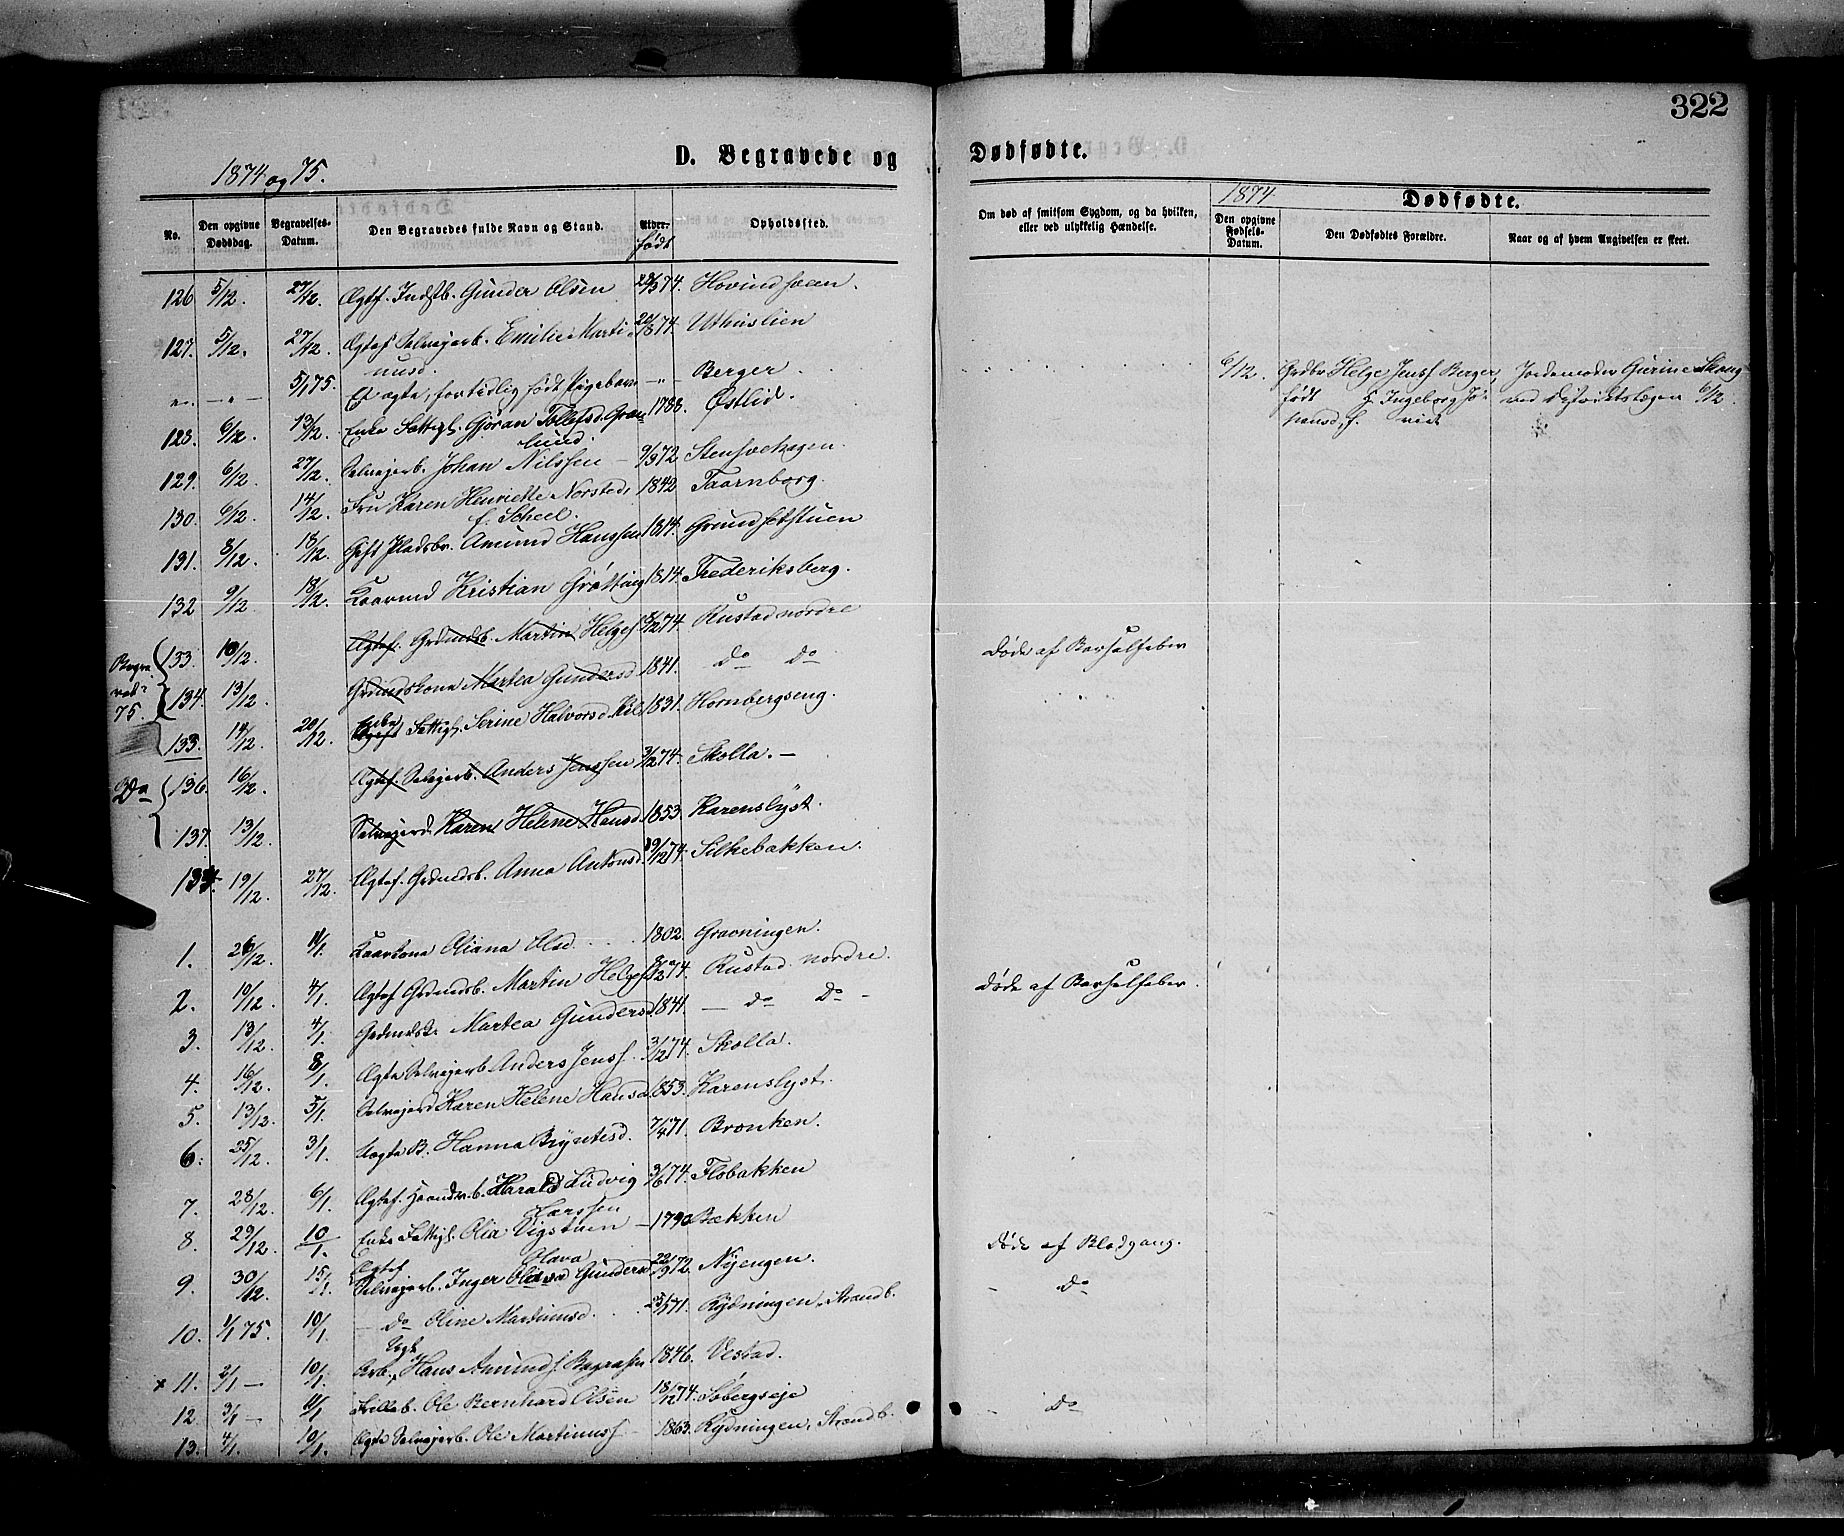 322
D. Begravede og Dødfødte.
1874 og 75.
1874
Dødfødte.
No.
Den opgivne Dødsdag.
Begravelses-Datum.
Den Begravedes fulde Navn og Stand.
Alder. født
Opholdssted.
Om død af smitsom Sygdom, og da hvilken, eller ved ulykkelig Hændelse.
Den opgivne Fødsels-Datum.
Den Dødfødtes Forældre.
Naar og af hvem Angivelsen er skeet.
126 5/12. 27/12. Ægtef. Indstb. Gunder Olsen 74. Hovindsveen.
127. 5/12. 27/12. Ægtef Selvejerb. Emilie Marti- 1874. Uthuslien
nusd.
" — " — 5/1 75. Et ægte, fortidlig født Pigebarn — " — Berger
6/12. Grdbr Helge Jensf Berger Jordemoder Gurine Skaug
født H. Ingeborg Jo- ved Distriktslægen 6/12.
hansd.
128. 6/12. 13/12. Enke Fattigl. Gjøran Tollefsd. Gran- 1788. Østlid.
lund.
129. 6/12. 27/12. Selvejerb. Johan Nilssen — 9/3 72 Stensvehagen.
130. 6/12. 14/12. Fru Karen Henriette Norsted, 1842 Taarnborg.
f. Scheel.
131. 8/12. 18/12. Gift Pladsbr. Amund Hanssen 1814. Grundsetstuen
132 9/12. 18/12. Kaarmd Kristian Grøtting 1814. Frederiksberg.
Begra-
vet i
75.
133. 10/12. Ægtef. Grdmdsb. Martin Helgesf 8/12 74. Rustad nordre
Døde af Barselfeber
134. 13/12. Grdmdskone Martea Gundersd 1841. Do Do
133. 14/12. 20/12. Enke Fattigl. Serine Halvorsd. 1831. Hornbergseng.
Do
136. 16/12. Ægtef. Selvejerb. Anders Jenssen 3/12 74. Skolla. —
137. 13/12. Selvejerd. Karen Helene Hansd. 1853. Karenslyst.
134. 19/12. 27/12. Ægtef. Grdmdsb. Anna Antonsd. 19/12 74. Silkebakken.
1. 26/12. 4/1. Kaarkone Oliana Olsd. 1802. Gravningen.
2. 10/12. 4/1. Ægtef Grdmdsb. Martin Helgesf 8/12 74. Rustad nordre.
Døde af Barselfeber.
3. 13/12. 4/1. Grdmdsk. Martea Gundersd. 1841. — Do Do —
4. 16/12. 8/1. Ægte Selvejerb Anders Jensf. 3/12 74. Skolla.
5. 13/12. 5/1. Selvejerd Karen Helene Hansd 1853. Karenslyst.
6. 25/12. 3/1. Uægte B. Hanna Bryntesd. 7/4 71. Bronken.
7. 28/12. 6/1. Ægtef. Haandv. b. Harald Ludvig 3/6 74. Flobakken
Larssen
8. 29/12. 10/1. Enke Fattigl. Olia Vigstuen — 1790 Bækken
Døde af Blodgang.
Ægtef Olava
9. 30/12. 15/1. Selvejerb. Inger Gundersd 22/9 72. Nyengen.
— Do
10. 1/1 75. 10/1. — Do Oline Martinusd. 71. Rydningen, Strandb.
Ugt
x 11. 2/1 — 10/1. Arb. Hans Amundsf. 1846. Vestad.
12. 3/1 — 4/1 Ole Bernhard Olsen 18/12 74. Søbergseje
— Do
13. 4/1. 10/1. Ægte Selvejerb. Ole Martinusf — 1863. Rydningen, Strandb.